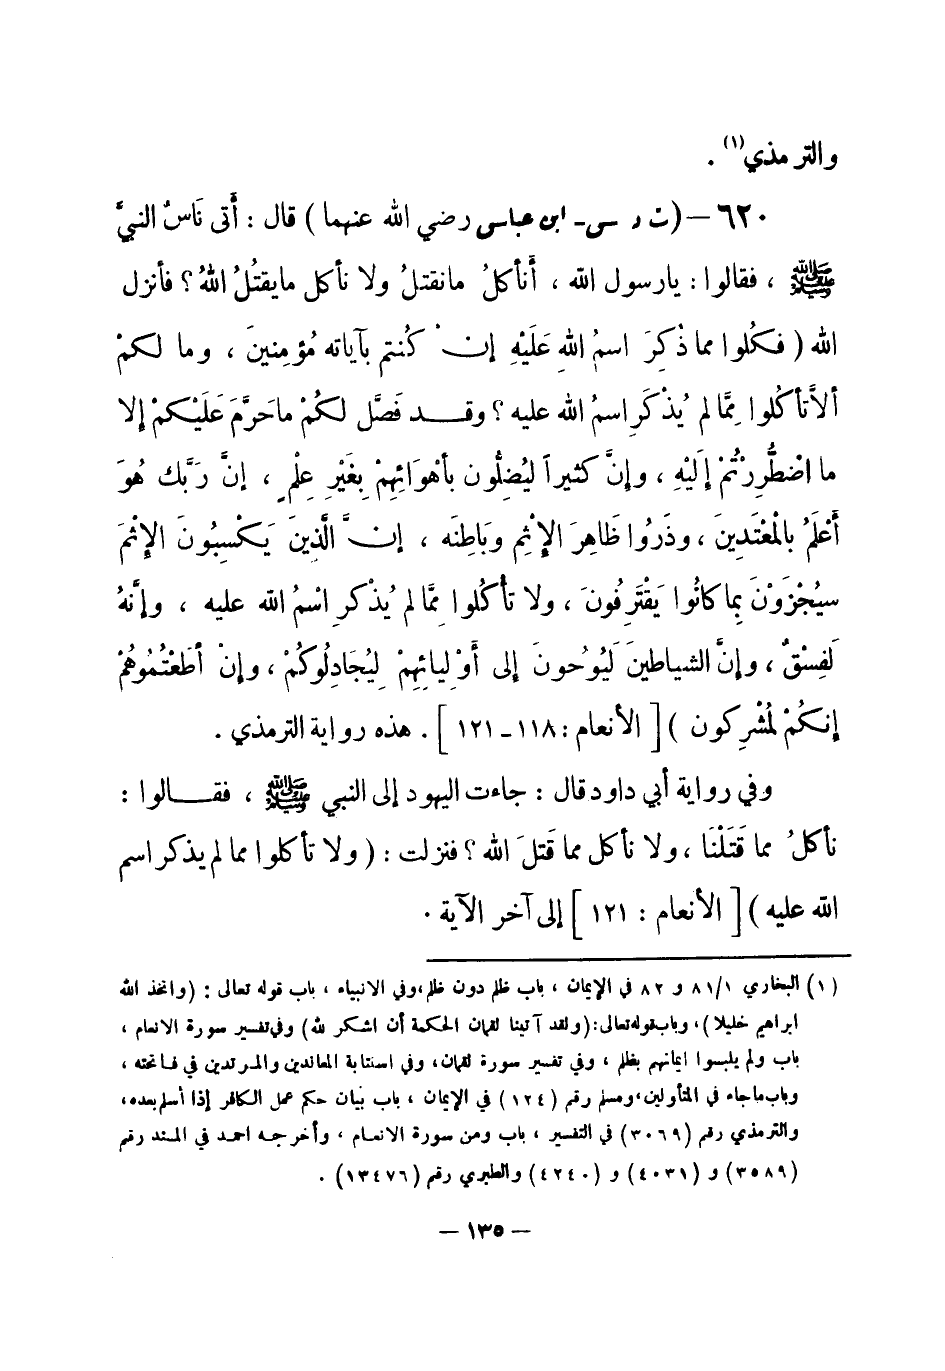 والترمذي(١) .
٦٢٠ – (ت د سى- ابن عباسى رضي الله عنهما ) قال : أَتى نَاسٌ النبيَّ
ﷺ ، فقالوا : يارسول الله ، أَنأكلُ مانقتلُ ولا نأكل مايقتُلُ اللهُ ؟ فأنزل
الله ( فكُلوا مما ذُكِرَ اسمُ اللهِ عَلَيْهِ إنْ كُنتم بآياته مُؤمِنينَ ، وما لكمْ
ألاَّ تأكُلوا مِمَّا لم يُذكَرِ اسمُ الله عليه ؟ وقد فَصَّل لكُمْ ماحَرَّمَ عَلَيْكمْ إلا
ما اضْطُرِرْتُمْ إلَيْهِ ، وإنَّ كثيراً ليُضِلُّون بأهْوائِهِمْ بِغَيْرِ عِلْمٍ ، إنَّ رَبَّك هُوَ
أَعْلَمُ بالمْعْتَدِينَ ، وذَرُوا ظَاهِرَ الإثمِ وبَاطِنَه ، إنَّ الَّذِينَ يَكْسِبُونَ الإثْمَ
سيُجْزَوْنَ بِما كانُوا يَقْتَرِفُونَ ، ولا تأكُلوا مِمَّا لم يُذْكرِ اسْمُ الله عليه ، وإنَّهُ
لَفِسْقٌ ، وإنَّ الشياطينَ لَيُوحُونَ إلى أَوْليائِهِمْ لِيُجَادِلُوكُمْ ، وإنْ أطَعْتُمُوهُمْ
إنكُمْ لمُشْرِكون ) [ الأنعام : ١١٨ - ١٢١ ] . هذه رواية الترمذي .
وفي رواية أبي داود قال : جاءت اليهود إلى النبي ﷺ ، فقالوا :
نأكلُ مما قَتَلْنَا ، ولا نأكل مما قَتلَ الله ؟ فنزلت : ( ولا تأكلوا مما لم يذكر اسم
الله عليه ) [ الأنعام : ١٢١ ] إلى آخر الآية .
(١) البخاري ٨١/١ و ٨٢ في الإيمان ، باب ظلم دون ظلم ، وفي الانبياء ، باب قوله تعالى : (واتخذ الله
ابراهيم خليلا) ، وباب قوله تعالى : (ولقد آتينا لقمان الحكمة أن اشكر لله) وفي تفسير سورة الانعام ،
باب ولم يلبسوا ايمانهم بظلم ، وفي تفسير سورة لقمان ، وفي استتابة المعاندين والمرتدين في فاتحته ،
وباب ماجاء في المتأولين ، ومسلم رقم (١٢٤) في الإيمان ، باب بيان حكم عمل الكافر إذا أسلم بعده ،
والترمذي رقم (٣٠٦٩) في التفسير ، باب ومن سورة الانعام ، وأخرجه احمد في المسند رقم
(٣٥٨٩) و (٤٠٣١) و (٤٢٤٠) والطبري رقم (١٣٤٧٦) .
– ١٣٥ –